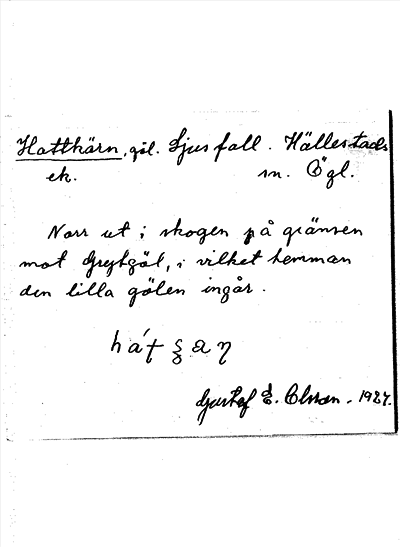 Hatthärn, göl. Ljusfall. Hällestads
ek. sn. Ögl.
Norr ut i skogen på gränsen
mot Grytgöl, i vilket hemman
den lilla gölen ingår.
Gustaf E. Olsson. 1927.